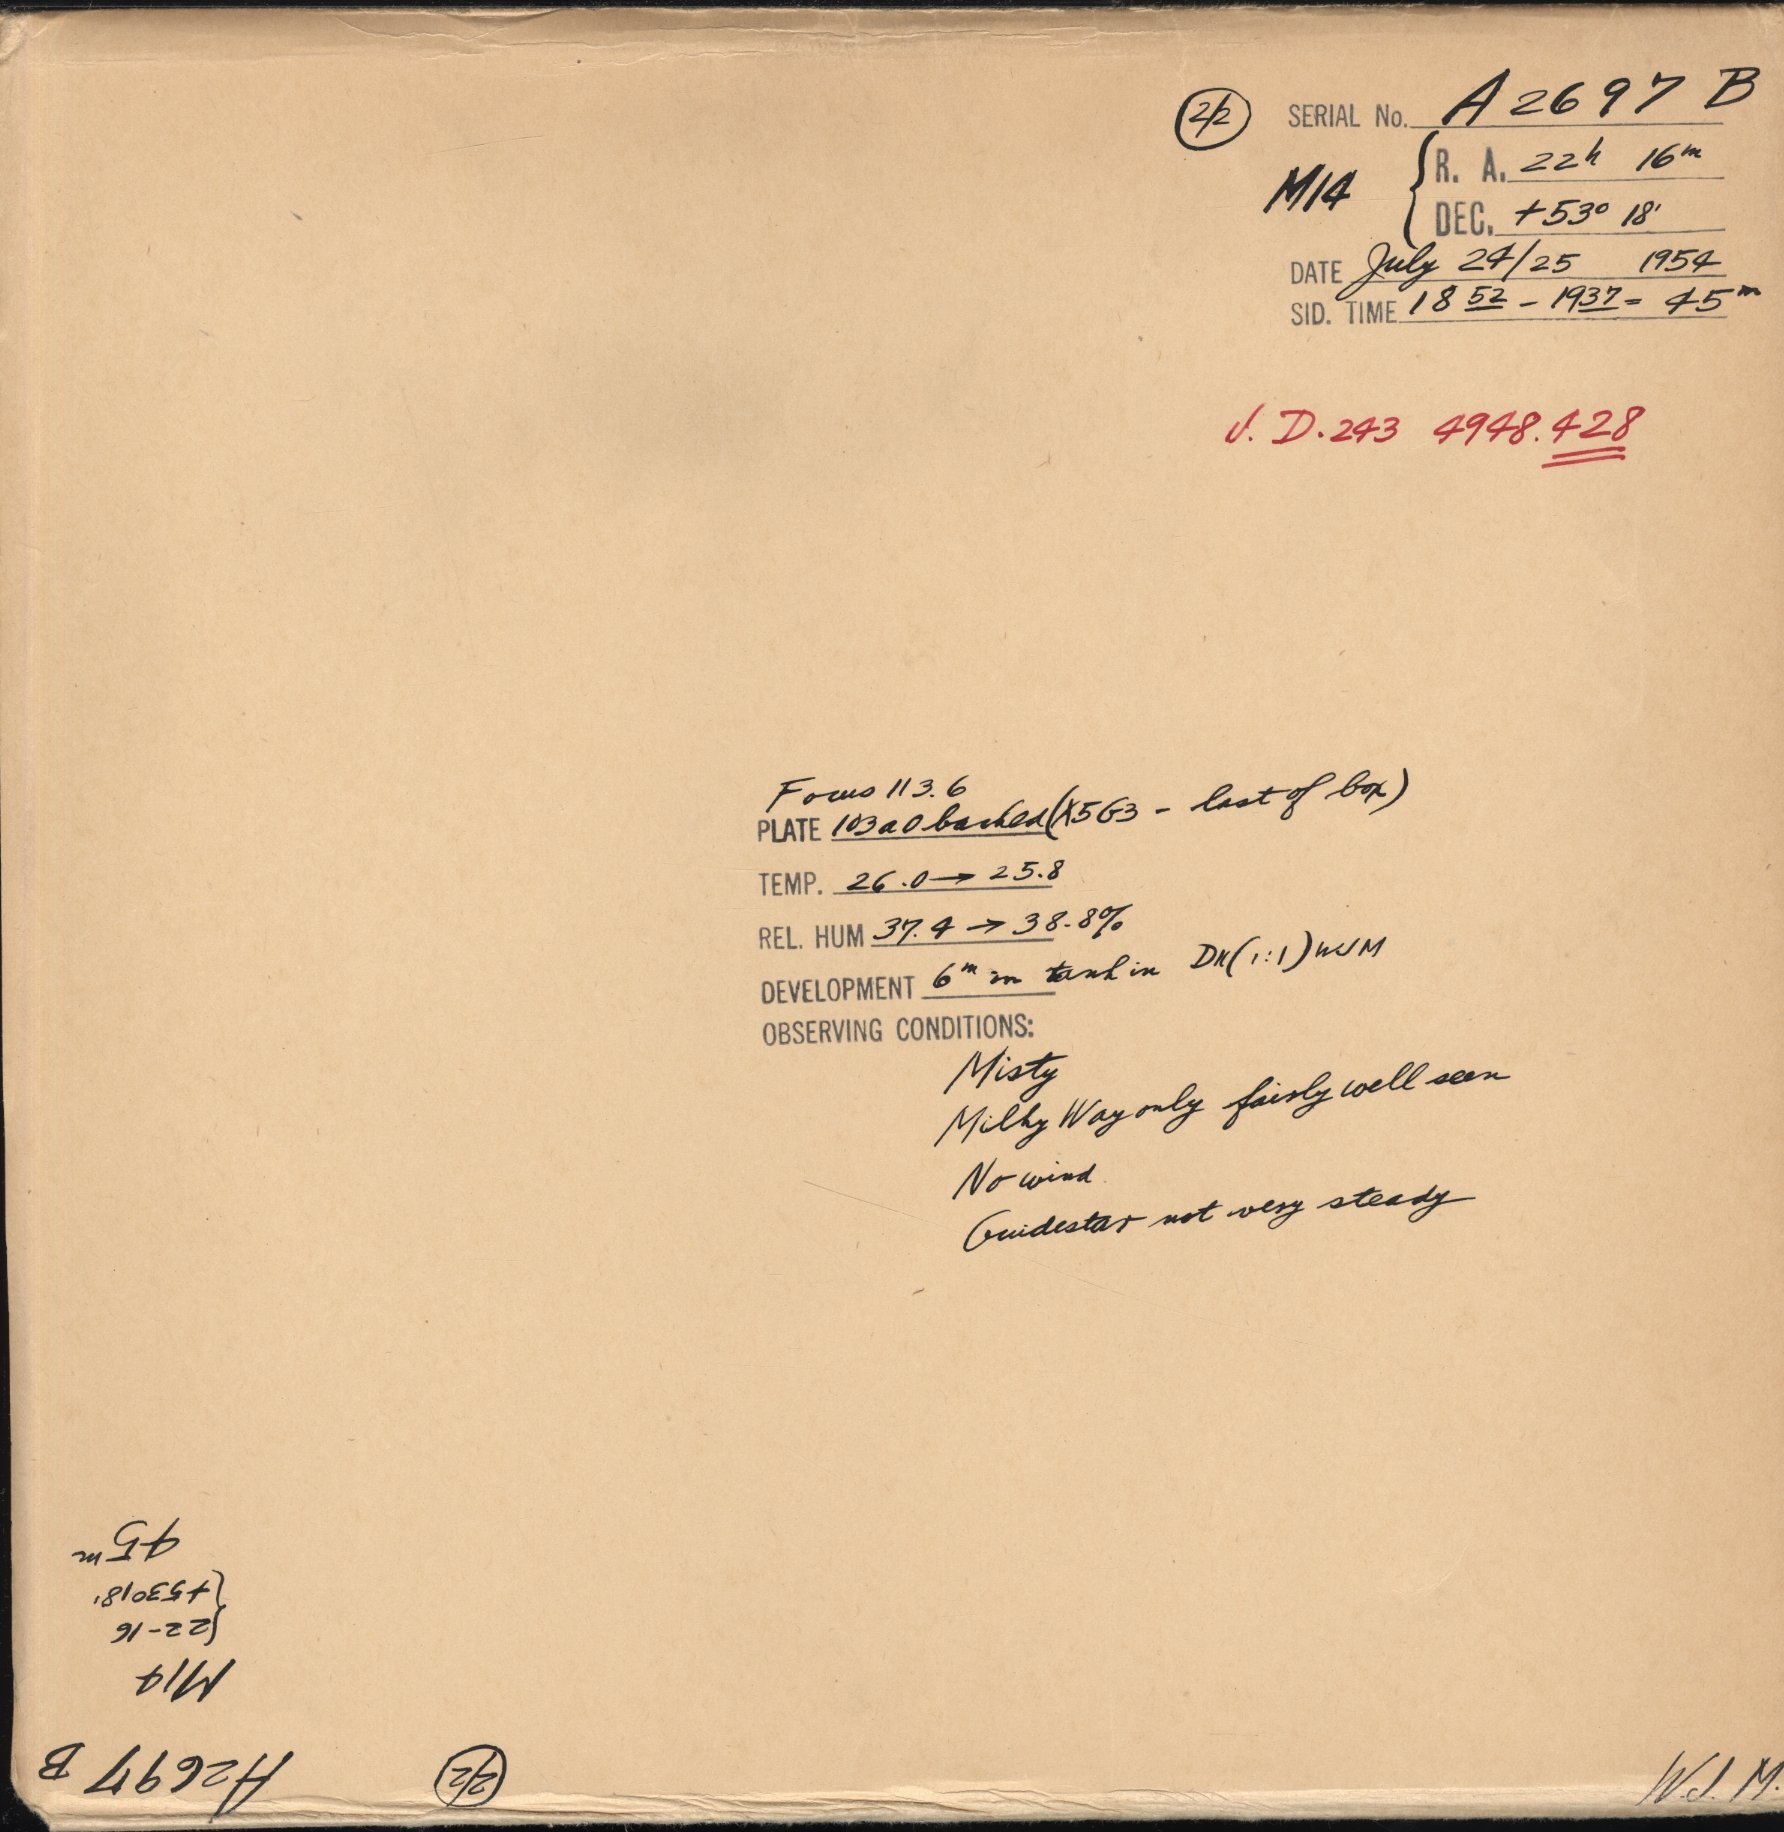 2/2 SERIAL No. A2697 B
M14 { R. A. 22h 16m
DEC. +53° 18'
DATE July 24/25 1954
SID. TIME 18 52 - 1937 = 45m
J. D. 243 4948.428
Focus 113.6
PLATE 103aO backed (X5G3 - last of box)
TEMP. 26.0 → 25.8
REL. HUM 37.4 → 38.8%
DEVELOPMENT 6m in tank in DK (1:1) WJM
OBSERVING CONDITIONS:
Misty
Milky Way only fairly well seen
No wind
Guidestar not very steady
W.J.M.
2/2
A2697 B
M14
{22-16
{+53°18'
45m